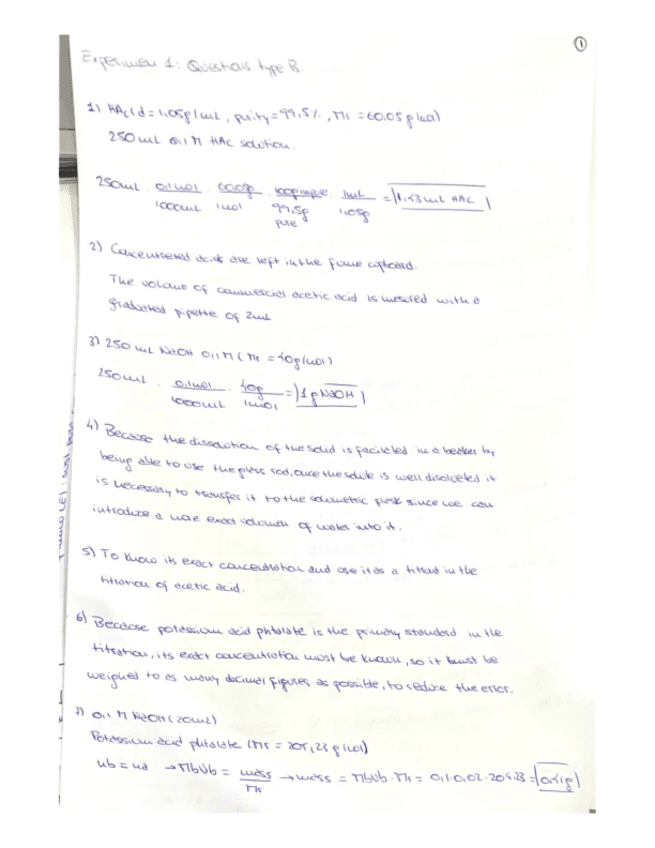 1
Experimen 1: Questions type B.
1) HAc (d = 1,05 g/mL, purity = 99,5%, Mr = 60,05 g/mol)
250 mL 0,1 M HAc solution.
250 mL · 0,1 mol / 1000 mL · 60,05g / 1 mol · 100g impure / 99,5g pure · 1mL / 1,05g = 1,43 mL HAC
2) Concentrated acids are left in the fume cupboard.
The volume of commercial acetic acid is mesured with a
graduated pipette of 2mL
3) 250 mL NaOH 0,1 M (Mr = 40g/mol)
250mL · 0,1 mol / 1000mL · 40g / 1 mol = 1 g NaOH
4) Because the dissolution of the solid is facilited in a beaker by
being able to use the glass rod, once the solute is well disolveted it
is necessary to transfer it to the volumetric flask since we can
introduce a more exact volumen of water into it.
5) To know its exact concentration and use it as a titrad in the
titration of acetic acid.
6) Because potassium acid phtalate is the primary standerd in the
titration, its exact concentration must be known, so it must be
weighed to as many decimal figures as possible, to reduce the error.
7) 0,1 M NaOH (20mL)
Potassium acid phtalate (Mr = 204,23 g/mol)
nb = na → MbVb = mass / Mr → mass = MbVb · Mr = 0,1 · 0,02 · 204,23 = 0,41g